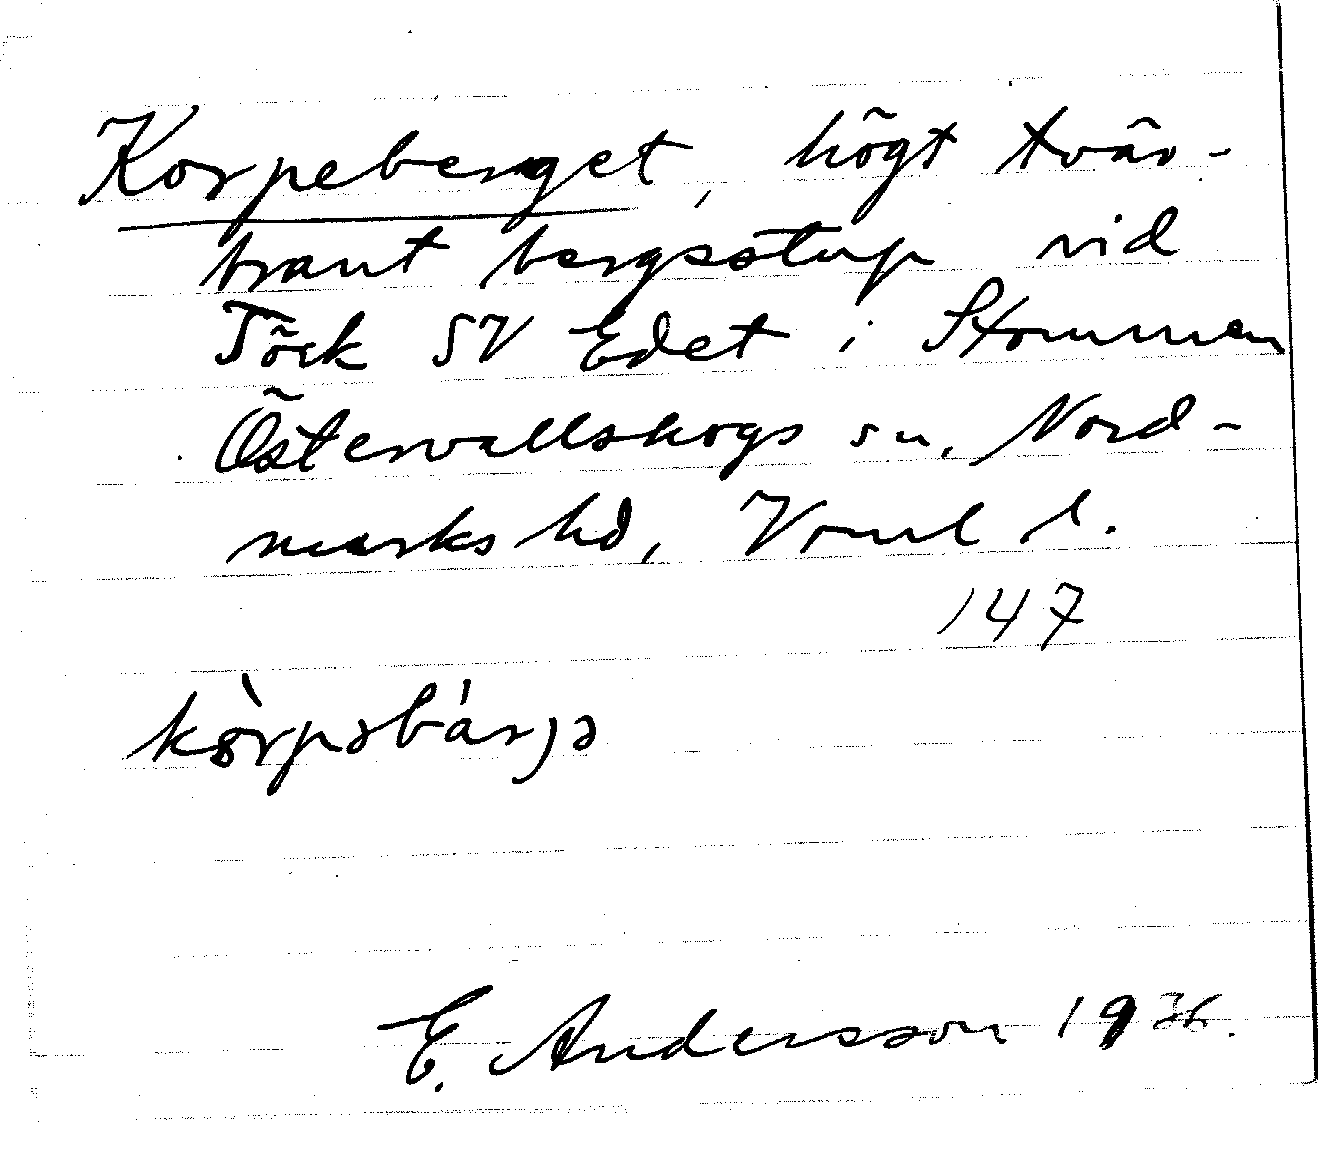 Korpeberget, högt tvär-
brant bergsstup vid
Töck SV Edet i Stommen
Östervallskogs sn, Nord-
marks hd, Vrml l.
147
kòrpəbárjə
E. Andersson 1936.